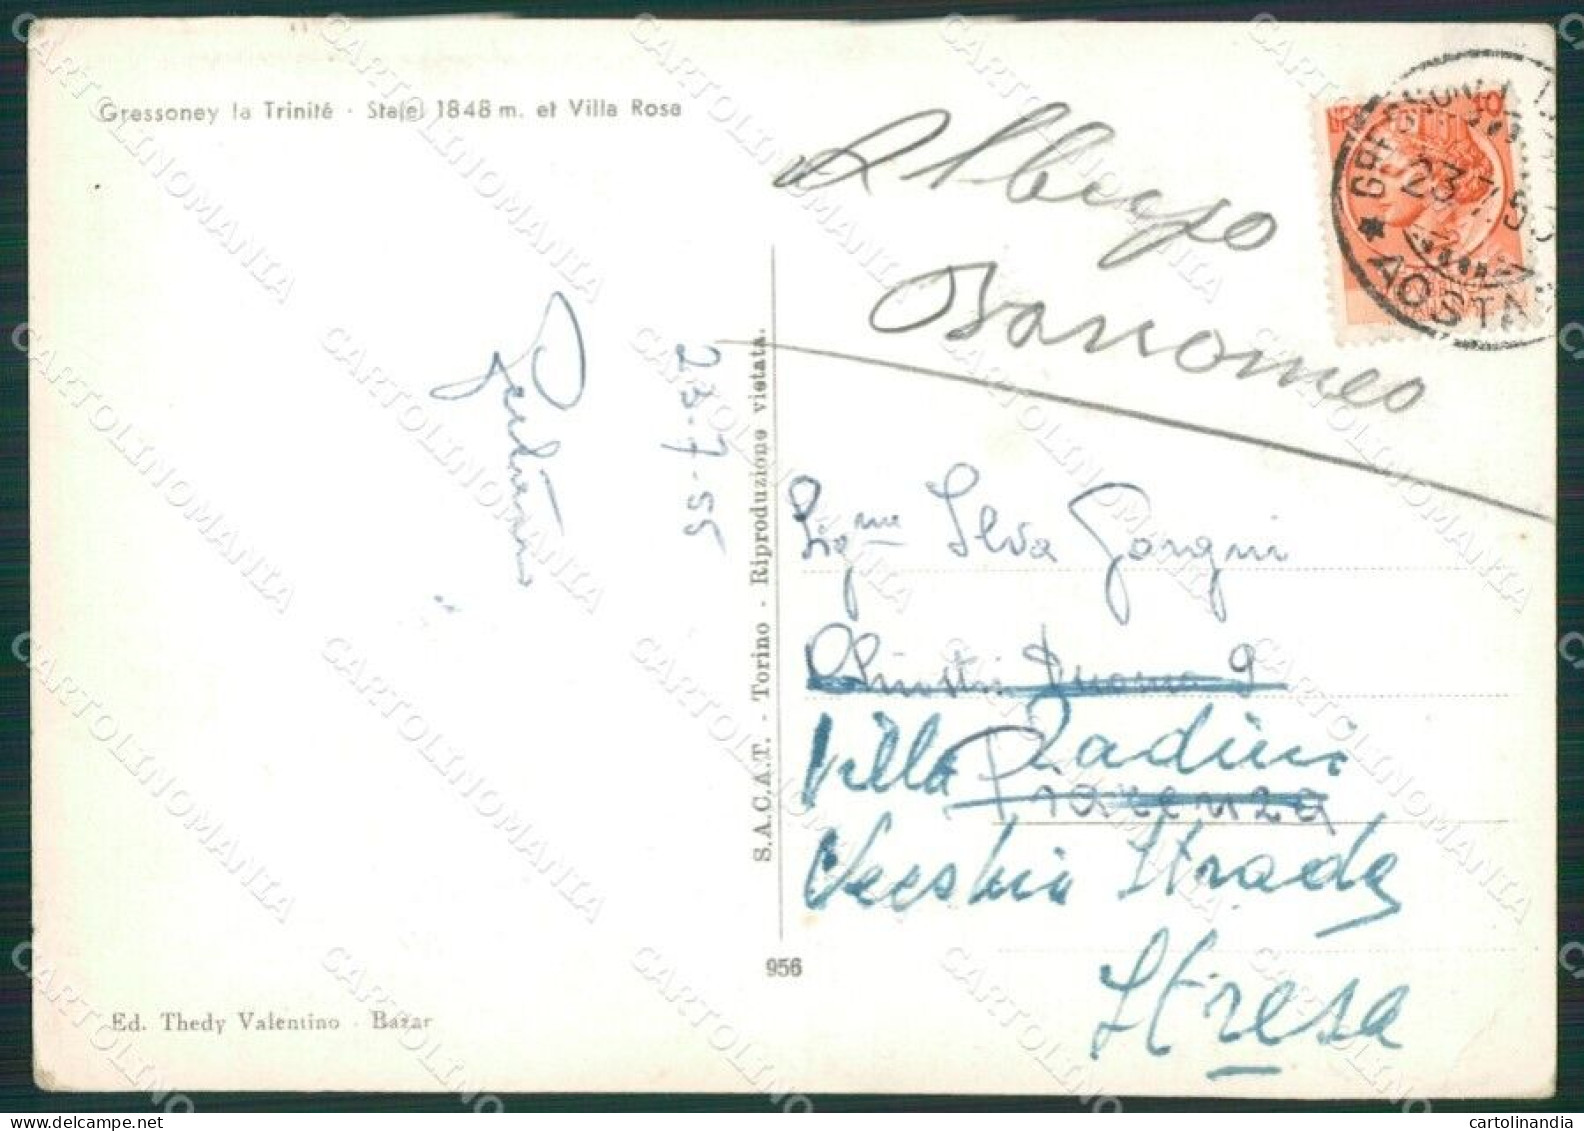 Gressoney la Trinité - Stafel 1848 m. et Villa Rosa
LIRE 10
23.7.55
AOSTA
Albergo
Borromeo
23-7-55
S.A.C.A.T. - Torino - Riproduzione vietata.
Sig.na Silva Gorgni
Chiostri Duomo 9
Villa Radini
Piacenza
Vecchia Strada
Stresa
956
Ed. Thedy Valentino - Bazar
cartolinandia